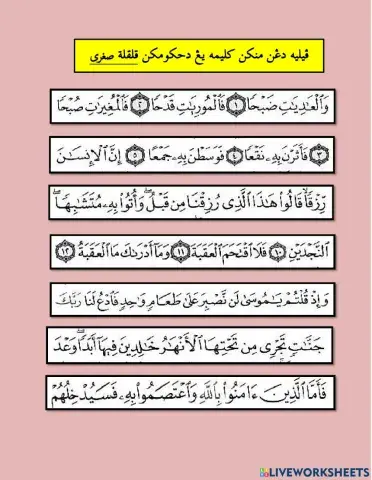 ڤيليه دڠن منكن كليمه يڠ دحكومكن قلقلة صغرى
وَٱلْعَٰدِيَٰتِ ضَبْحًا ١ فَٱلْمُورِيَٰتِ قَدْحًا ٢ فَٱلْمُغِيرَٰتِ صُبْحًا
٣ فَأَثَرْنَ بِهِۦ نَقْعًا ٤ فَوَسَطْنَ بِهِۦ جَمْعًا ٥ إِنَّ ٱلْإِنسَٰنَ
رِّزْقًا ۙ قَالُوا۟ هَٰذَا ٱلَّذِى رُزِقْنَا مِن قَبْلُ ۖ وَأُتُوا۟ بِهِۦ مُتَشَٰبِهًا ۖ
ٱلنَّجْدَيْنِ ١٠ فَلَا ٱقْتَحَمَ ٱلْعَقَبَةَ ١١ وَمَآ أَدْرَىٰكَ مَا ٱلْعَقَبَةُ ١٢
وَإِذْ قُلْتُمْ يَٰمُوسَىٰ لَن نَّصْبِرَ عَلَىٰ طَعَامٍ وَٰحِدٍ فَٱدْعُ لَنَا رَبَّكَ
جَنَّٰتٍ تَجْرِى مِن تَحْتِهَا ٱلْأَنْهَٰرُ خَٰلِدِينَ فِيهَآ أَبَدًا ۖ وَعْدَ
فَأَمَّا ٱلَّذِينَ ءَامَنُوا۟ بِٱللَّهِ وَٱعْتَصَمُوا۟ بِهِۦ فَسَيُدْخِلُهُمْ
LIVEWORKSHEETS